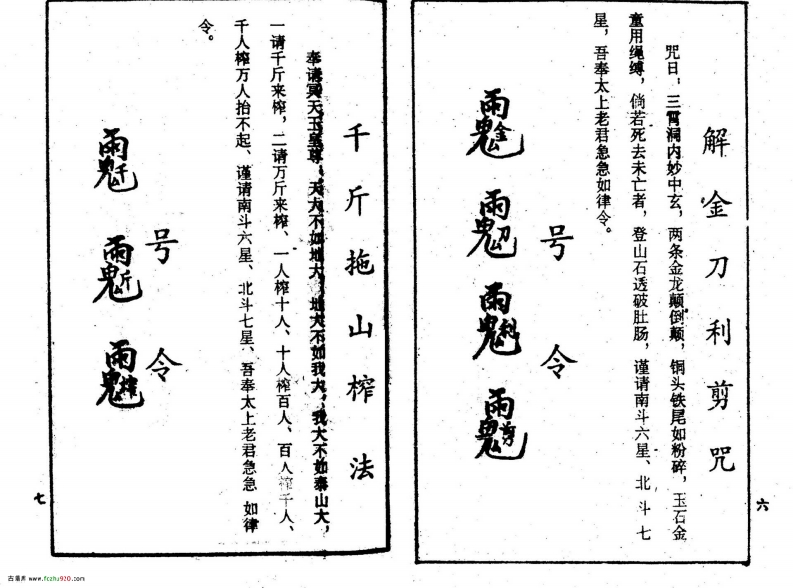 解金刀利剪咒
咒日，三霄洞内妙中玄，两条金龙颠倒颠，铜头铁尾如粉碎，玉石金
童用绳缚，倘若死去未亡者，登山石透破肚肠，谨请南斗六星、北斗七
星，吾奉太上老君急急如律令。
号令
六
千斤拖山榨法
奉请冥天玉皇尊，天大不如地大，地大不如我大，我大不如泰山大，
一请千斤来榨，二请万斤来榨、一人榨十人、十人榨百人、百人榨千人、
千人榨万人抬不起、谨请南斗六星、北斗七星、吾奉太上老君急急如律
令。
号令
七
古籍库 www.fczhu920.com